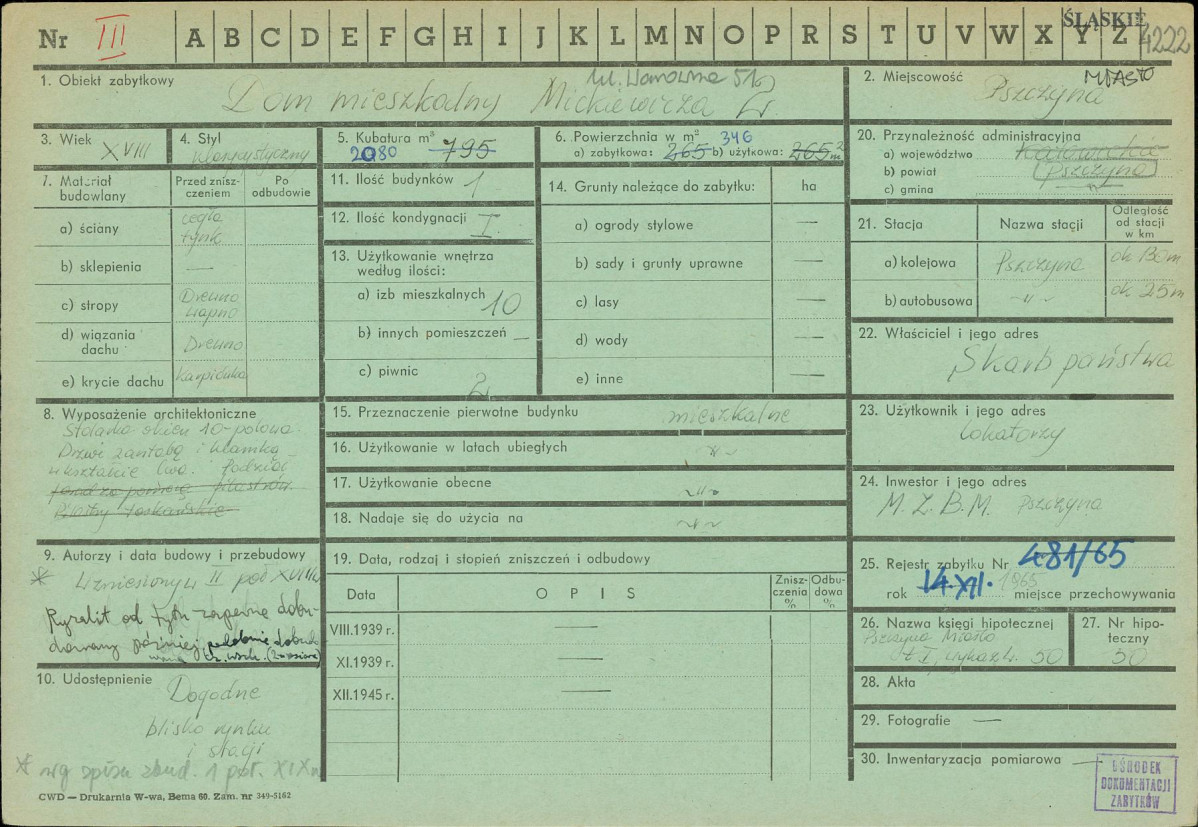 Nr III A B C D E F G H I J K L M N O P R S T U V W X Y Z
ŚLĄSKIE
4222
1. Obiekt zabytkowy
Dom mieszkalny Mickiewicza 2
2. Miejscowość MIASTO
Pszczyna
3. Wiek XVIII
4. Styl
klasycystyczny
5. Kubatura m³
2080 795
6. Powierzchnia w m² 346
a) zabytkowa: 265 b) użytkowa: 265 m²
7. Materiał budowlany
Przed zniszczeniem
Po odbudowie
a) ściany
cegła
tynk
b) sklepienia —
c) stropy
Drewno
d) wiązania dachu
Drewno
e) krycie dachu
Karpiówka
8. Wyposażenie architektoniczne
Stolarka okien 10-polowa.
Drzwi z antabą i klamką
w kształcie lwa. Podział
pilastrów
toskańskie
9. Autorzy i data budowy i przebudowy
* Wzniesiony w II poł XVIII w
Ryzalit od tyłu zapewne dobu-
dowany później, podobnie dobudo-
wana cz. wsch.
10. Udostępnienie
Dogodne
blisko rynku
i stacji
* wg spisu zbud. 1 poł. XIX w
CWD — Drukarnia W-wa, Bema 60. Zam. nr 349-5162
11. Ilość budynków 1
12. Ilość kondygnacji I
13. Użytkowanie wnętrza
według ilości:
a) izb mieszkalnych 10
b) innych pomieszczeń —
c) piwnic 2
14. Grunty należące do zabytku: ha
a) ogrody stylowe —
b) sady i grunty uprawne —
c) lasy —
d) wody —
e) inne —
15. Przeznaczenie pierwotne budynku mieszkalne
16. Użytkowanie w latach ubiegłych -"-
17. Użytkowanie obecne -"-
18. Nadaje się do użycia na -"-
19. Data, rodzaj i stopień zniszczeń i odbudowy
Data
OPIS
Zniszczenia %
Odbudowa %
VIII.1939 r. —
XI.1939 r. —
XII.1945 r. —
20. Przynależność administracyjna
a) województwo Katowickie
b) powiat Pszczyna
c) gmina
21. Stacja
Nazwa stacji
Odległość
od stacji
w km
a) kolejowa Pszczyna
b) autobusowa -"-
22. Właściciel i jego adres
Skarb państwa
23. Użytkownik i jego adres
lokatorzy
24. Inwestor i jego adres
M.Z.B.M. Pszczyna
25. Rejestr zabytku Nr 481/65
rok 14.XII. 1965 miejsce przechowywania
26. Nazwa księgi hipotecznej
Pszczyna Miasto
t. I, wykaz L. 50
27. Nr hipoteczny
50
28. Akta
29. Fotografie —
30. Inwentaryzacja pomiarowa —
OŚRODEK
DOKUMENTACJI
ZABYTKÓW